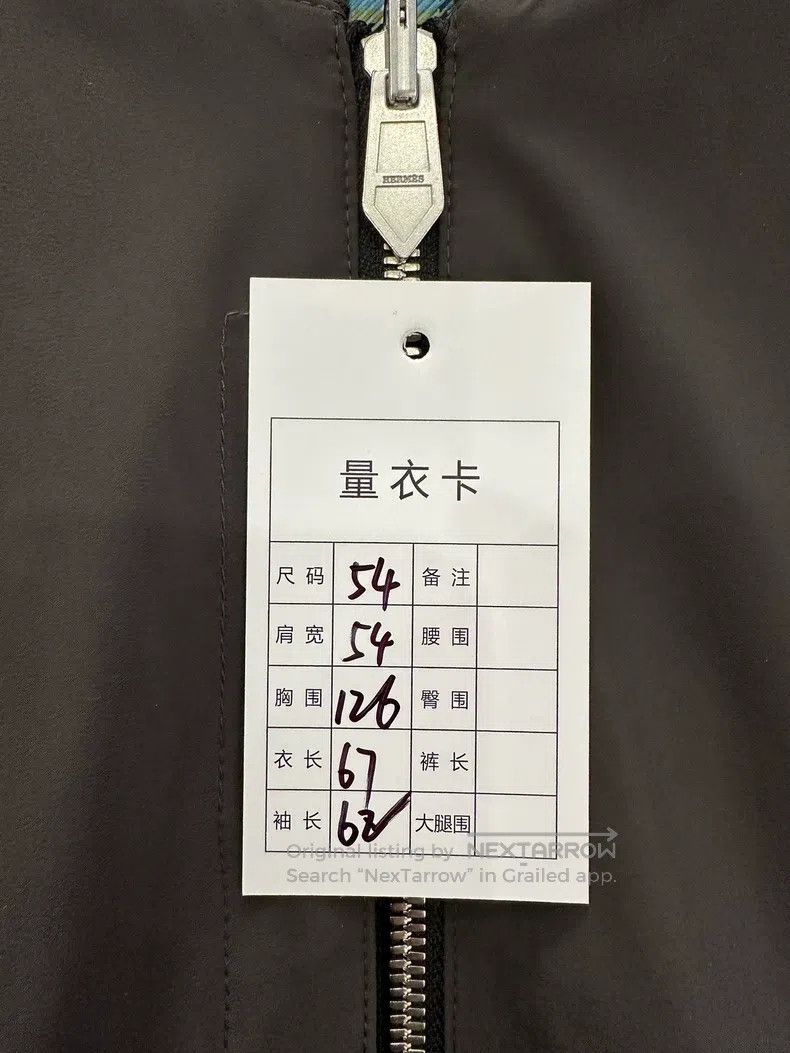 HERMÈS
量衣卡
尺码 54 备注
肩宽 54 腰围
胸围 126 臀围
衣长 67 裤长
袖长 大腿围
Original listing by NEXTARROW
Search “NexTarrow” in Grailed app.